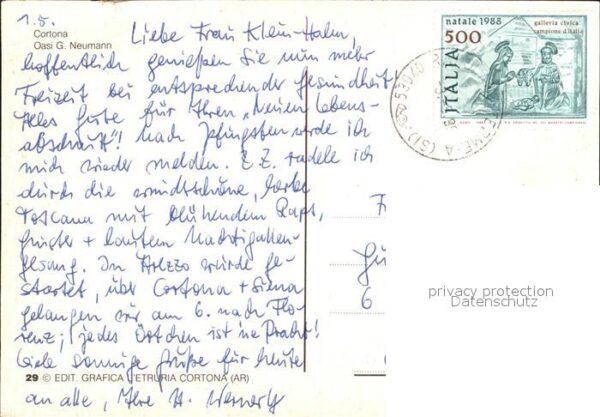 1.5.
Cortona
Oasi G. Neumann
Liebe Frau Klein-Hahn,
hoffentlich genießen Sie nun mehr
Freizeit bei entsprechender Gesundheit
Alles Gute für Ihren „Neuen Lebens-
abschnitt"! Nach Pfingsten werde ich
mich wieder melden. Z.Z. radele ich
durch die wunderschöne, herbe
Toscana mit blühendem Raps,
Ginster + lautem Nachtigallen-
gesang. In Arezzo wurde ge-
startet, über Cortona + Siena
gelangen wir am 6. nach Flo-
renz; jedes Örtchen ist 'ne Pracht!
Viele sonnige Grüße für heute
an alle, Ihre H.
29 © EDIT. GRAFICA L'ETRURIA CORTONA (AR)
natale 1988
galleria civica
campione d'italia
500
ITALIA
6
privacy protection
Datenschutz